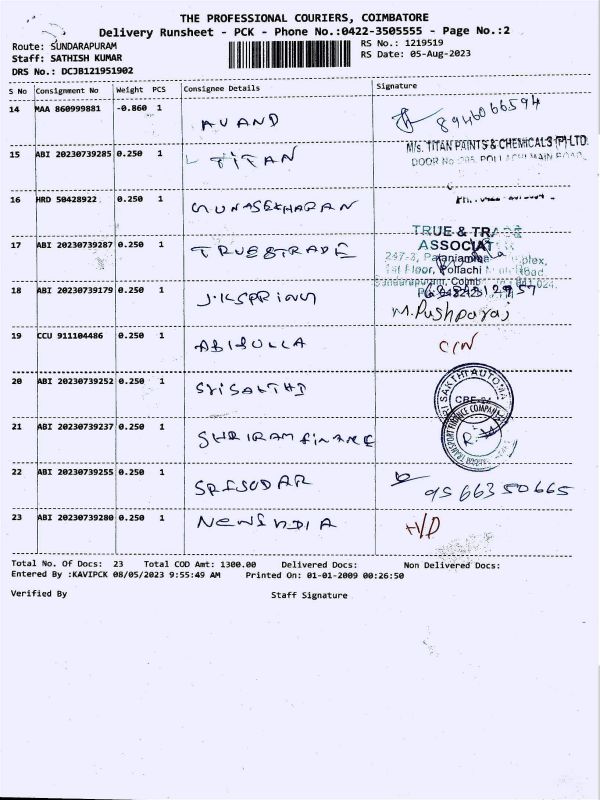 THE PROFESSIONAL COURIERS, COIMBATORE
Delivery Runsheet - PCK - Phone No.:0422-3505555 - Page No.:2
Route: SUNDARAPURAM
RS No.: 1219519
Staff: SATHISH KUMAR
RS Date: 05-Aug-2023
DRS No.: DCJB121951902
S No Consignment No Weight PCS Consignee Details Signature
14 MAA 860999881 -0.860 1 AVAND 8946066594
15 ABI 20230739285 0.250 1 TITAN M/s. TITAN PAINTS & CHEMICALS (P) LTD.
DOOR No POLLACHI MAIN ROAD
16 HRD 50428922 0.250 1 GUNASEKHARAN
17 ABI 20230739287 0.250 1 TRUE&TRADE TRUE & TRADE
ASSOCIAT
247-3,
1st Floor, Pollachi Road
18 ABI 20230739179 0.250 1 J.K SPRING M.Pushparaj
19 CCU 911104486 0.250 1 ABIBULLA C/N
20 ABI 20230739252 0.250 1 SRISAKTHI SRI SAKTHI AUTOMA
CBE-24
21 ABI 20230739237 0.250 1 SHRIRAM finance TRANSPORT FINANCE COMPANY
22 ABI 20230739255 0.250 1 9566350665
23 ABI 20230739280 0.250 1 NEWINDIA H/D
Total No. Of Docs: 23 Total COD Amt: 1300.00 Delivered Docs: Non Delivered Docs:
Entered By :KAVIPCK 08/05/2023 9:55:49 AM Printed On: 01-01-2009 00:26:50
Verified By Staff Signature